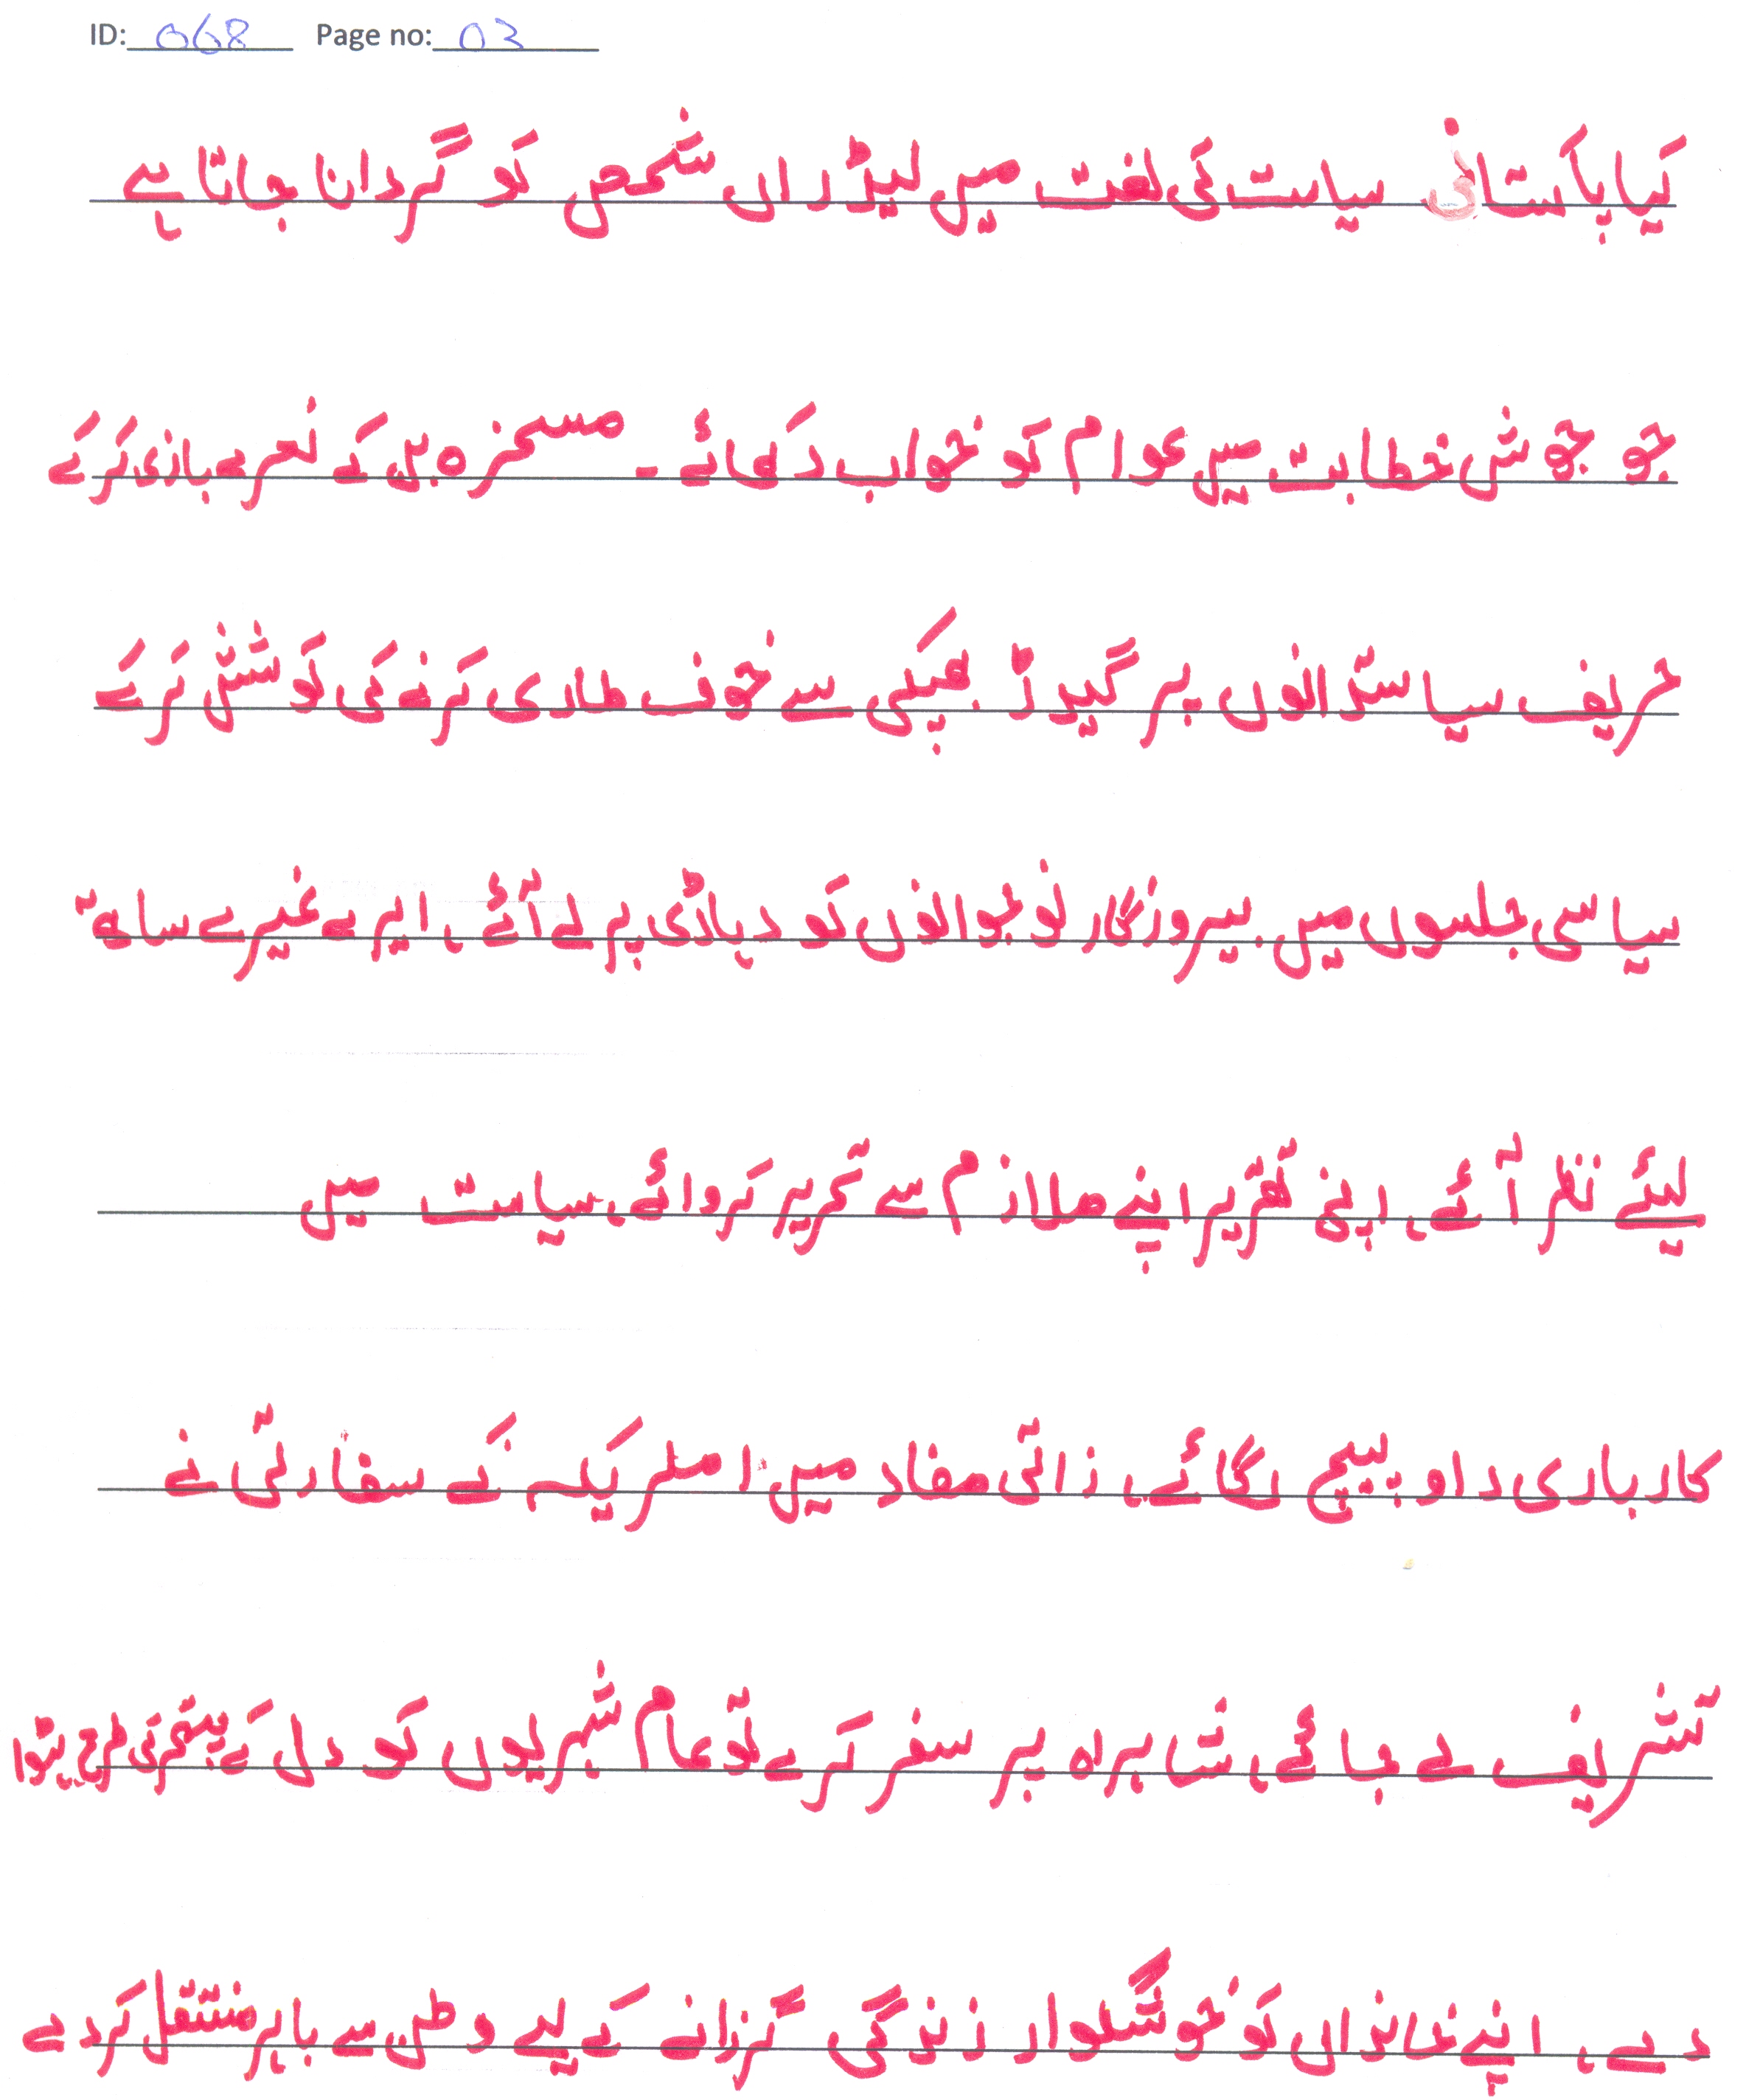 ID: 068 Page no: 03
کیا پاکستانی سیاست کی لغت میں لیڈر اس شخص کو گردانا جاتا ہے
جو جوش خطابت میں عوام کو خواب دکھائے۔ مسخرہ بن کے نعرے بازی کرے
حریف سیاستدانوں پر گیدڑ بھپکی سے خوف طاری کرنے کی کوشش کرے
سیاسی جلسوں میں بیروزگار نوجوانوں کو دہاڑی پر لے آئے، ایرے غیرے ساتھ
لیئے نظر آئے، اپنی تقریر اپنے ملازم سے تحریر کروائے، سیاست میں
کاربادی داو پیچ لگائے، ذاتی مفاد میں امریکہ کے سفارتی نے
تشریف لے جائے، شاہراہ پر سفر کرے تو عام شہریوں کو دل کے پتھر کی طرح ہٹوا
دے، اپنے خاندان کو خوشگوار زندگی گزرانے کے لیے وطن سے باہر منتقل کر دے